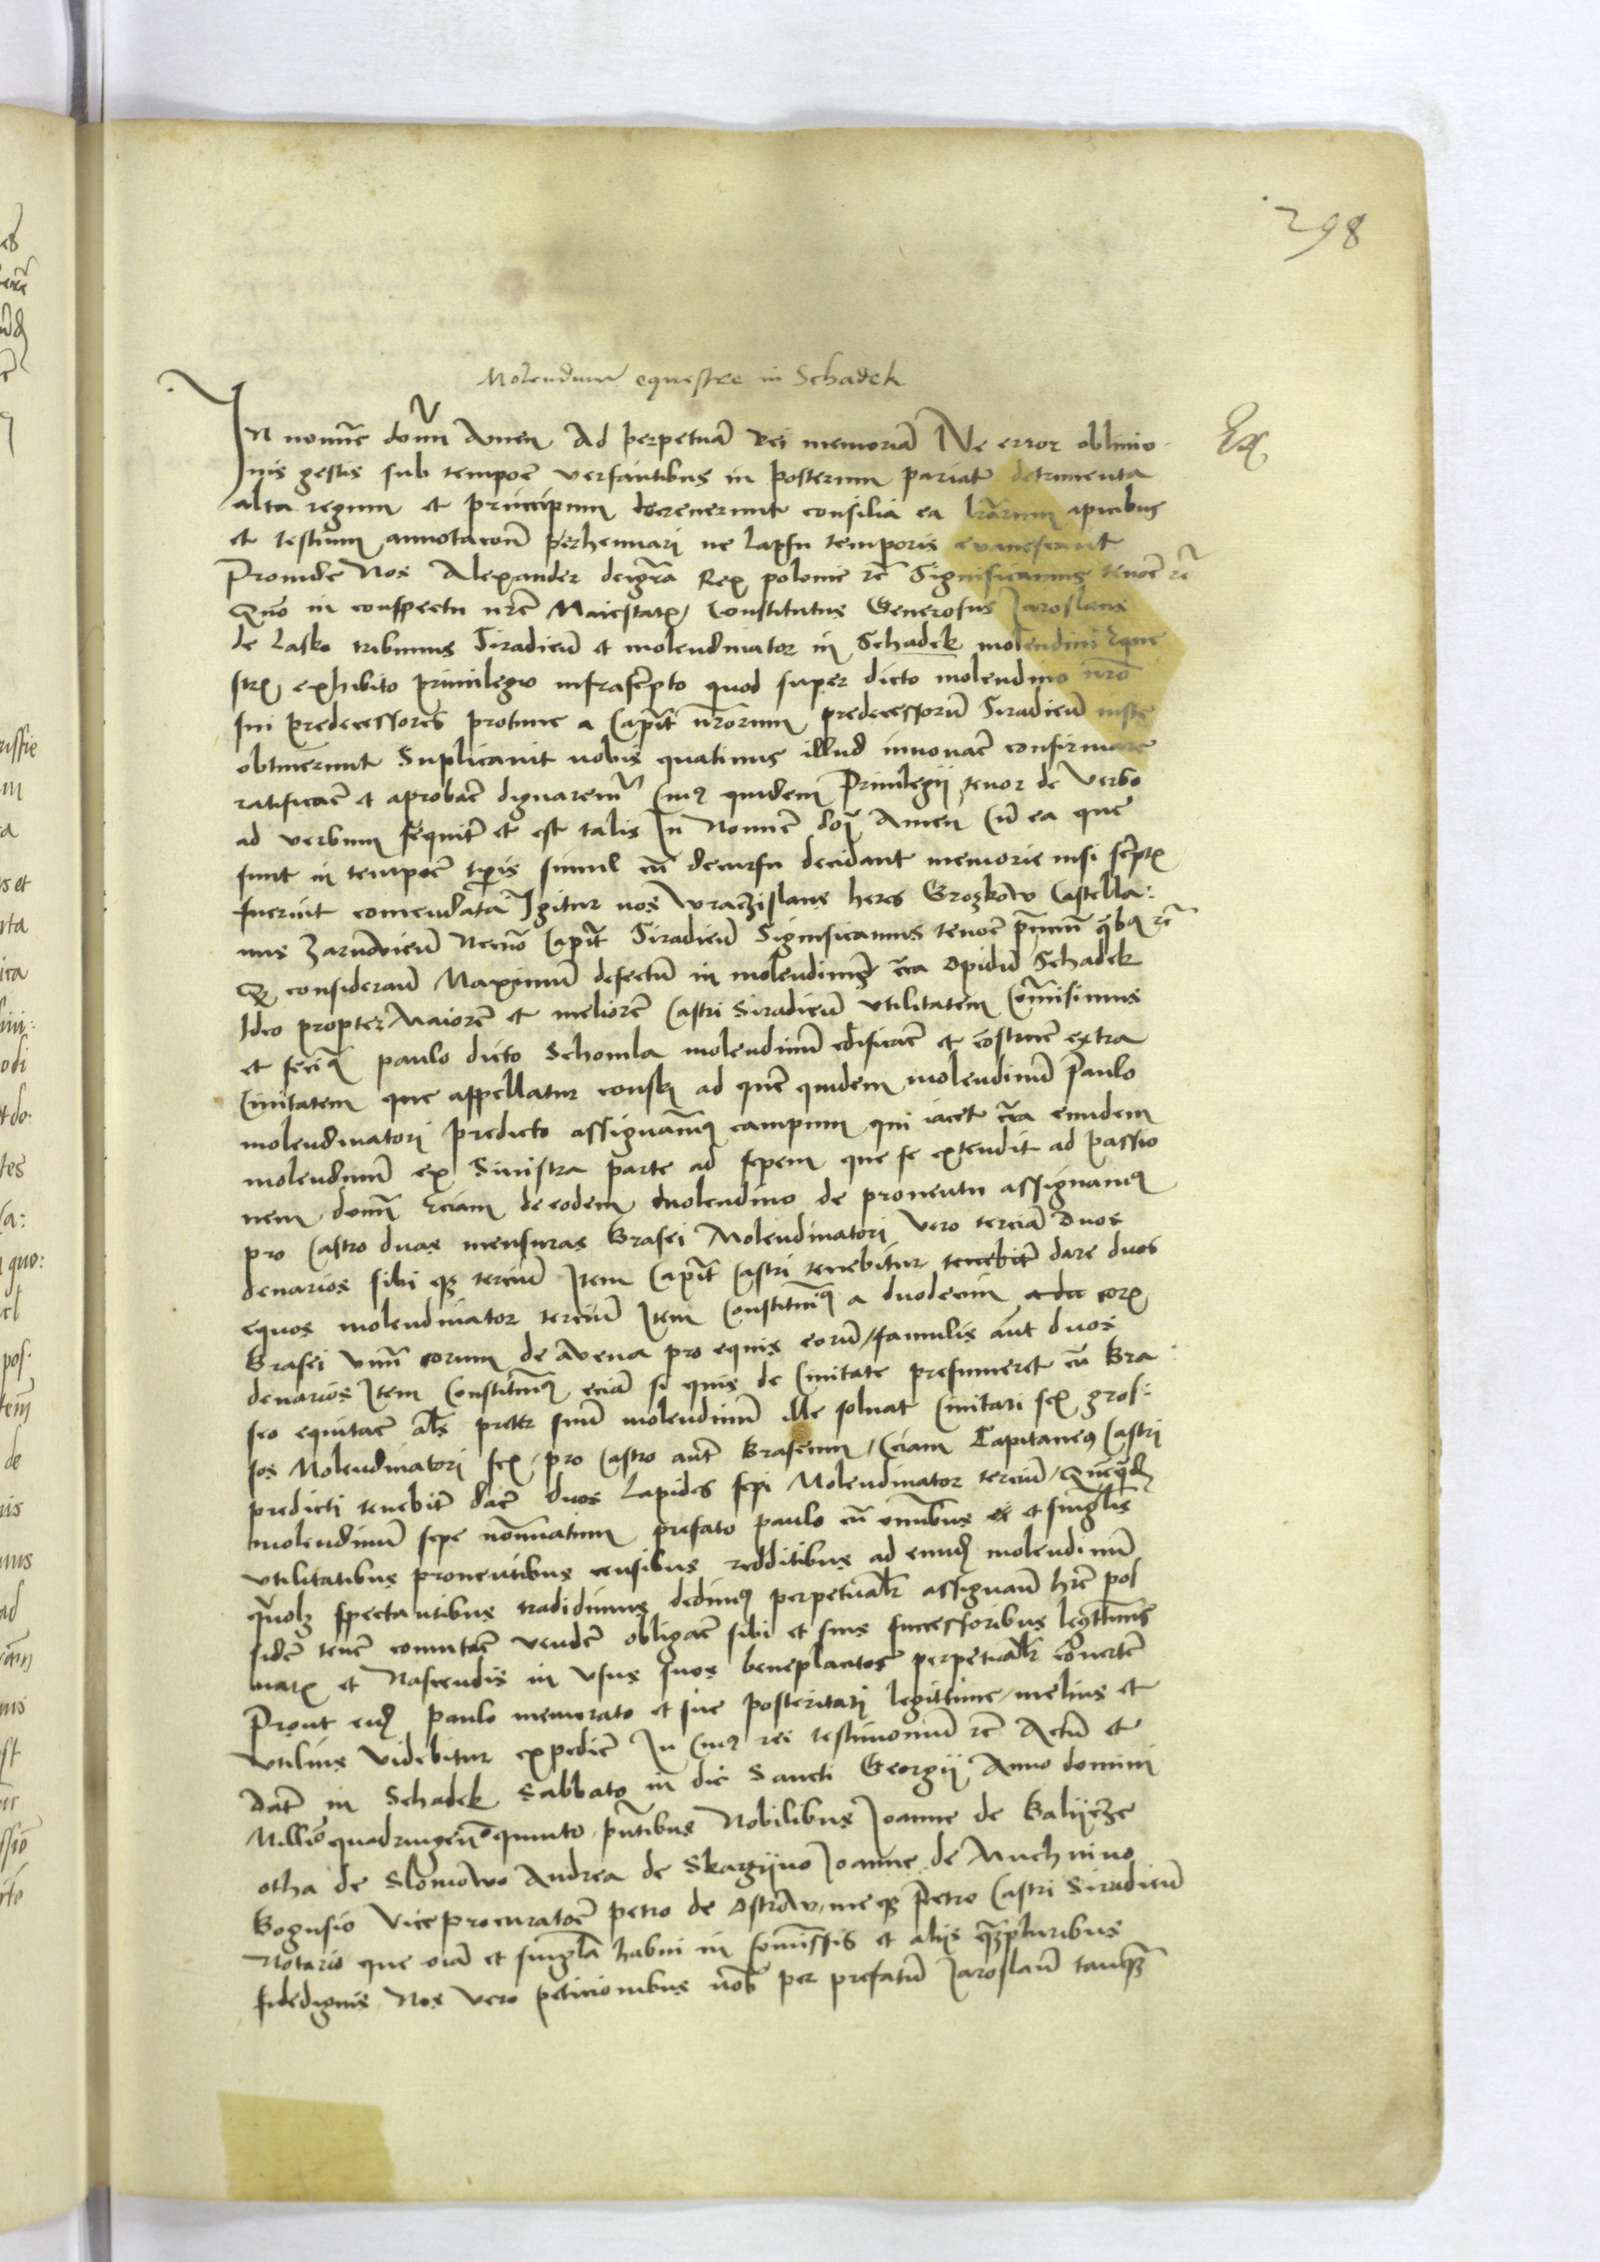 298
Molendinum equestre in Schadek
Ex
In nomine domini Amen Ad perpetuam Rei memoriam Ne error oblivio
nis gestis sub tempore versantibus in posterum pariat detrimenta
alta regum et principum decreverunt consilia ea lrarum apicibus
et testium annotacione perhennari ne lapsu temporis evanescant
Proinde Nos Alexander dei gra Rex polonie etc Significamus tenore etc
Quo in conspectu nre Maiestatis Constitutus Generosus Jaroslaus
de Lasko tribunus Siradien et molendinator in Schadek molendini Eque
stris exhibito privilegio infrascripto quod super dicto molendino nro
sui predecessores protunc a Capit nrorum predecessorum Siradien iuste
obtinuerunt Suplicavit nobis quatinus illud innovare confirmare
ratificare et aprobare dignaremur Cuius quidem Privilegii tenor de verbo
ad verbum sequitur et est talis In Nomine doi Amen Cum ea que
sunt in tempore tpis simul cum decursu decidant memorie nisi script
fuerint comendata Igitur nos Wraczislaus heres Grozkow Castella:
nus Zarnovien Necno Capit Siradien Significamus tenore pntium quibus etc
Q consideravim Maximum defectum in molendinis circa Opidum Schadek
Ideo propter Maiorem et meliorem Castri Siradien utilitatem Comisimus
et fecimus paulo dicto Schomla molendinum edificare et costruere extra
Civitatem que appellatur consk ad quem quidem molendinum Paulo
molendinatori predicto assignamus campum qui iacet circa eundem
molendinum ex Sinistra parte ad sepem que se extendit ad passio
nem domini Eciam de eodem molendino de proventu assignamus
pro Castro duas mensuras Brasei Molendinatori vero terciam duos
denarios sibi q tercium Item Capit Castri tenebitur tenebit dare duos
equos molendinator tercium Item Constituimus a duodecim coris
Brasei unum corum de Avena pro equis eorum famulis aut duos
denarios Item Constituimus eciam si quis de Civitate presumeret cum Bra
seo equitare als preter suum molendinum ille solvat Civitati sex gros:
sos Molendinatori sex pro Castro aut Braseum Eciam Capitaneus Castri
predicti tenebit dare duos Lapides sepi Molendinator tercium Quequidem
molendinum sepe nominatum prefato paulo cum omnibus et singulis
utilitatibus proventibus censibus redditibus ad eundem molendinum
quomolz spectantibus tradidimus dedimus perpetualr assignavim here pos
sidere tenere comutare vendere obligare sibi et suis successoribus legittimis
natis et Nascendis in usus suos beneplacitos perpetualr convertere
Prout eidem paulo memorato et sue posteritati legittime melius et
utilius videbitur expedire In Cuius rei testimonium etc Actum et
dat in Schadek Sabbato in die Sancti Georgii Anno domini
Millimo quadringen quinto pntibus Nobilibus Joanne de Baliicze
otha de Slomowo Andrea de Skargiino Joanne de Muchnino
Bogusio Viceprocuratore petro de Ostrow meq Petro Castri Siradien
Notario que oia et singula habui in Comissis et aliis qzpluribus
fidedignis Nos vero peticionibus nobis per prefatum Jaroslaum tanqz